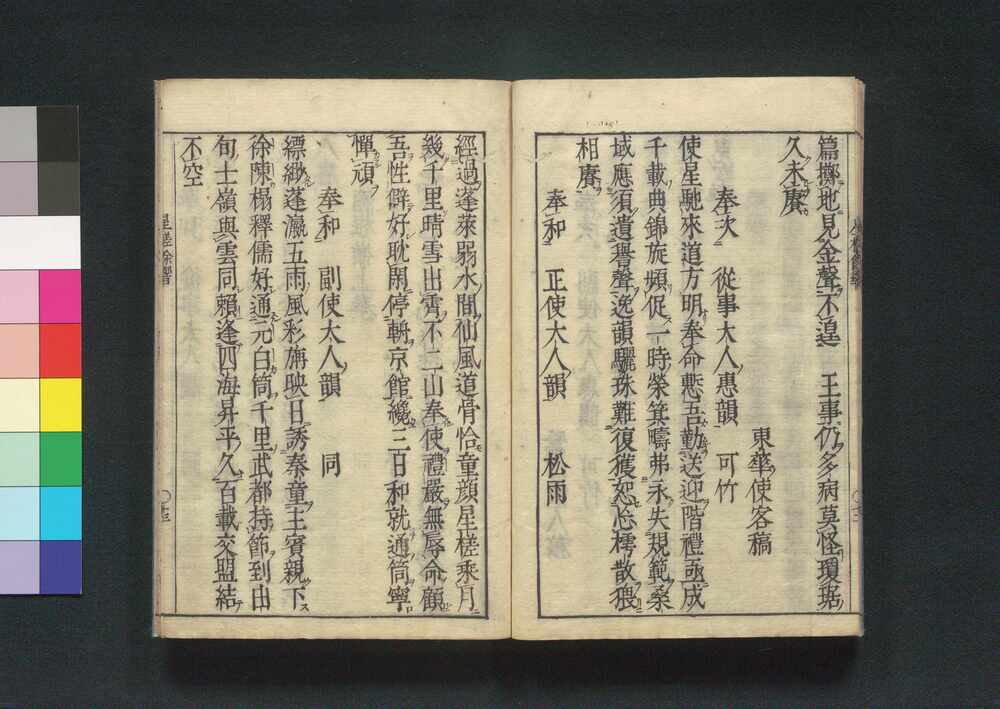 篇擲地見金聲不遑　王事仍多病莫怪瓊琚
久未賡
東華使客稿
奉次　從事大人惠韻　可竹
使星馳來道方明奉命慙吾勤送迎階禮亟成
千載典錦旋頻促一時榮箕疇弗永失規範桑
域應須遺譽聲逸韻驪珠難復獲恕恠樗散猥
相賡
奉和　正使大人韻　松雨
經過蓬萊弱水間仙風道骨恰童顔星槎乘月
幾千里晴雪出霄不二山奉使禮嚴無辱命顧
吾性僻好耽閑停轎京館纔三日和就通筒寧
憚頑
奉和　副使大人韻　同
縹緲蓬瀛五雨風彩旃映日誘秦童主賓親下
徐陳榻釋儒好通元白筒千里武都持節到由
旬士嶺與雲同賴逢四海昇平久百載交盟結
不空
星槎餘響
十三